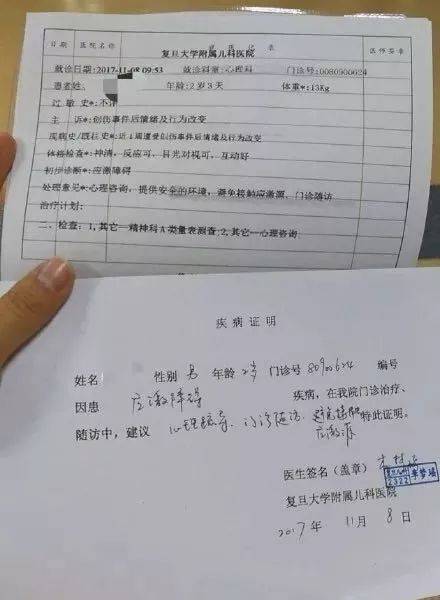 日期 医院名称 病史记录 表 医师签章
复旦大学附属儿科医院
就诊日期:2017-11-08 09:53 就诊科室:心理科 门诊号:0080900624
患者姓名: 年龄:2岁3天 体重*:13Kg
过敏史*:不详
主 诉*:创伤事件后情绪及行为改变
现病史/既往史*:近1周遭受创伤事件后情绪及行为改变
体格检查*:神清,反应可,目光对视可,互动好
初步诊断*:应激障碍
处理意见*:心理咨询,提供安全的环境,避免接触应激源、门诊随访
治疗计划:
一、检查:1,其它--精神科A类量表测查;2,其它--心理咨询
疾病证明
姓名 性别 男 年龄 2岁 门诊号 80900624 编号
因患 应激障碍 疾病,在我院门诊治疗、
随访中,建议 心理辅导、门诊随访、避免接触应激源 特此证明。
医生签名(盖章)
复旦大学附属儿科医院
2017 年 11 月 8 日